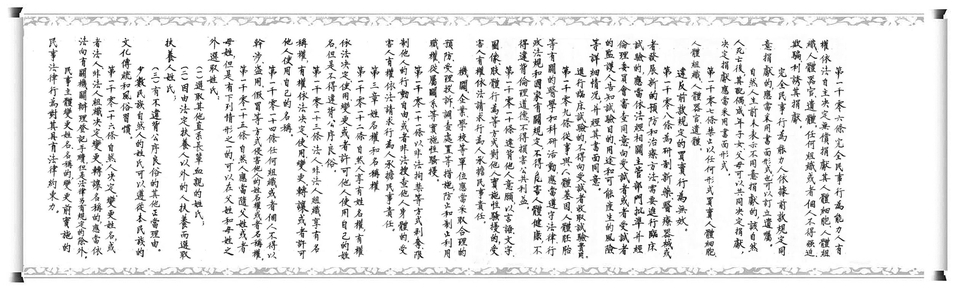 第一千零六條完全民事行為能力人有
權依法自主決定無償捐獻其人體細胞、人體組
織、人體器官、遺體。任何組織或者個人不得強迫、
欺騙、利誘其捐獻。
完全民事行為能力人依據前款規定同
意捐獻的,應當采用書面形式,也可以訂立遺囑。
自然人生前未表示不同意捐獻的,該自然
人死亡後,其配偶、成年子女、父母可以共同決定捐獻,
決定捐獻應當采用書面形式。
第一千零七條禁止以任何形式買賣人體細胞、
人體組織、人體器官、遺體。
違反前款規定的買賣行為無效。
第一千零八條為研制新藥、醫療器械或
者發展新的預防和治療方法,需要進行臨床
試驗的,應當依法經相關主管部門批準並經
倫理委員會審查同意,向受試者或者受試者
的監護人告知試驗目的、用途和可能產生的風險
等詳細情況,并經其書面同意。
進行臨床試驗的,不得向受試者收取試驗費用。
第一千零九條從事與人體基因、人體胚胎
等有關的醫學和科研活動,應當遵守法律、行
政法規和國家有關規定,不得危害人體健康,不
得違背倫理道德,不得損害公共利益。
第一千零一十條違背他人意願,以言語、文字、
圖像、肢體行為等方式對他人實施性騷擾的,受
害人有權依法請求行為人承擔民事責任。
機關、企業、學校等單位應當采取合理的
預防、受理投訴、調查處置等措施,防止和制止利用
職權、從屬關系等實施性騷擾。
第一千零一十一條以非法拘禁等方式剝奪、限
制他人的行動自由,或者非法搜查他人身體的,受
害人有權依法請求行為人承擔民事責任。
第三章姓名權和名稱權
第一千零一十二條自然人享有姓名權,有權
依法決定、使用、變更或者許可他人使用自己的姓
名,但是不得違背公序良俗。
第一千零一十三條法人、非法人組織享有名
稱權,有權依法決定、使用、變更、轉讓或者許可
他人使用自己的名稱。
第一千零一十四條任何組織或者個人不得以
幹涉、盜用、假冒等方式侵害他人的姓名權或者名稱權。
第一千零一十五條自然人應當隨父姓或者
母姓,但是有下列情形之一的,可以在父姓和母姓之
外選取姓氏:
(一)選取其他直系長輩血親的姓氏;
(二)因由法定扶養人以外的人扶養而選取
扶養人姓氏;
(三)有不違背公序良俗的其他正當理由。
少數民族自然人的姓氏可以遵從本民族的
文化傳統和風俗習慣。
第一千零一十六條自然人決定、變更姓名,或
者法人、非法人組織決定、變更、轉讓名稱的,應當依
法向有關機關辦理登記手續,但是法律另有規定的除外。
民事主體變更姓名、名稱的,變更前實施的
民事法律行為對其具有法律約束力。